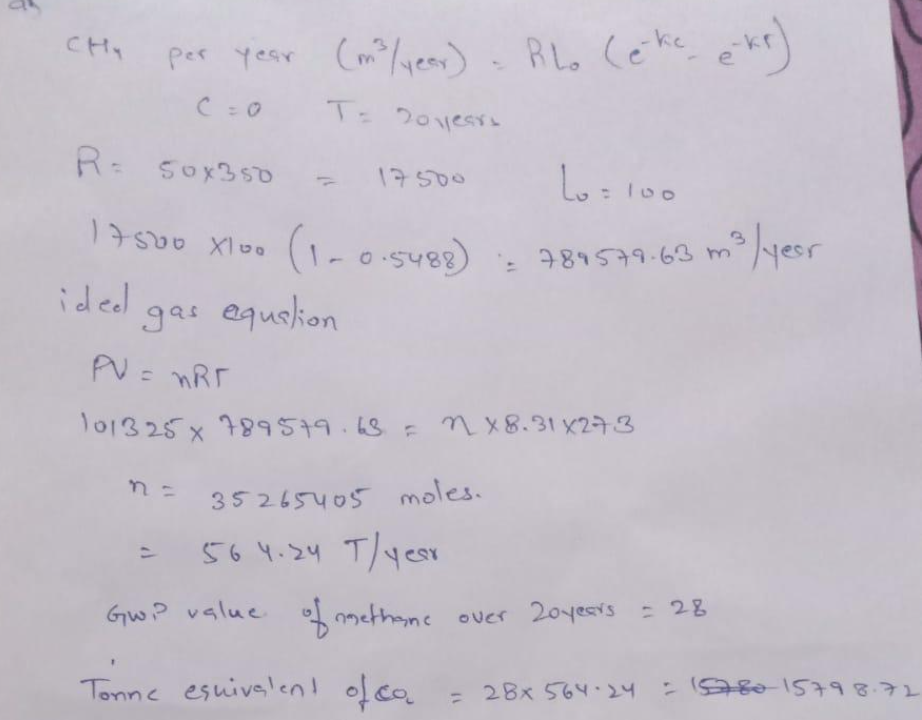 CH4 per year (m³/year) = RL₀ (e^-kc - e^-kT)
C = 0 T = 20 years
R = 50x350 = 17500 L₀ = 100
17500 x100 (1 - 0.5488) = 789579.63 m³/year
ideal gas equation
PV = nRT
101325 x 789579.63 = n x8.31x273
n = 35265405 moles.
= 564.24 T/year
GWP value of methane over 20years = 28
Tonne equivalent of co2 = 28x 564.24 = 15798.72